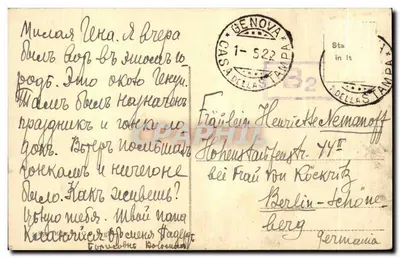 Милая Гена. Я вчера
былъ вотъ въ этомъ го
родѣ. Это около Генуи.
Тамъ былъ назначенъ
праздникъ и гонки ло
докъ. Вѣтеръ помѣшалъ
гонкамъ и ничего не
было. Какъ живешь?
Цѣлую тебя. Твой папа
GENOVA
CASA DELLA STAMPA
1-5 22
Sta
in It
DELLA STAMPA
Fräulein Henriette Nemanoff
Hohenstaufenstr. 44 II
bei Frau von Köckritz
Berlin-Schöne
berg
Germania